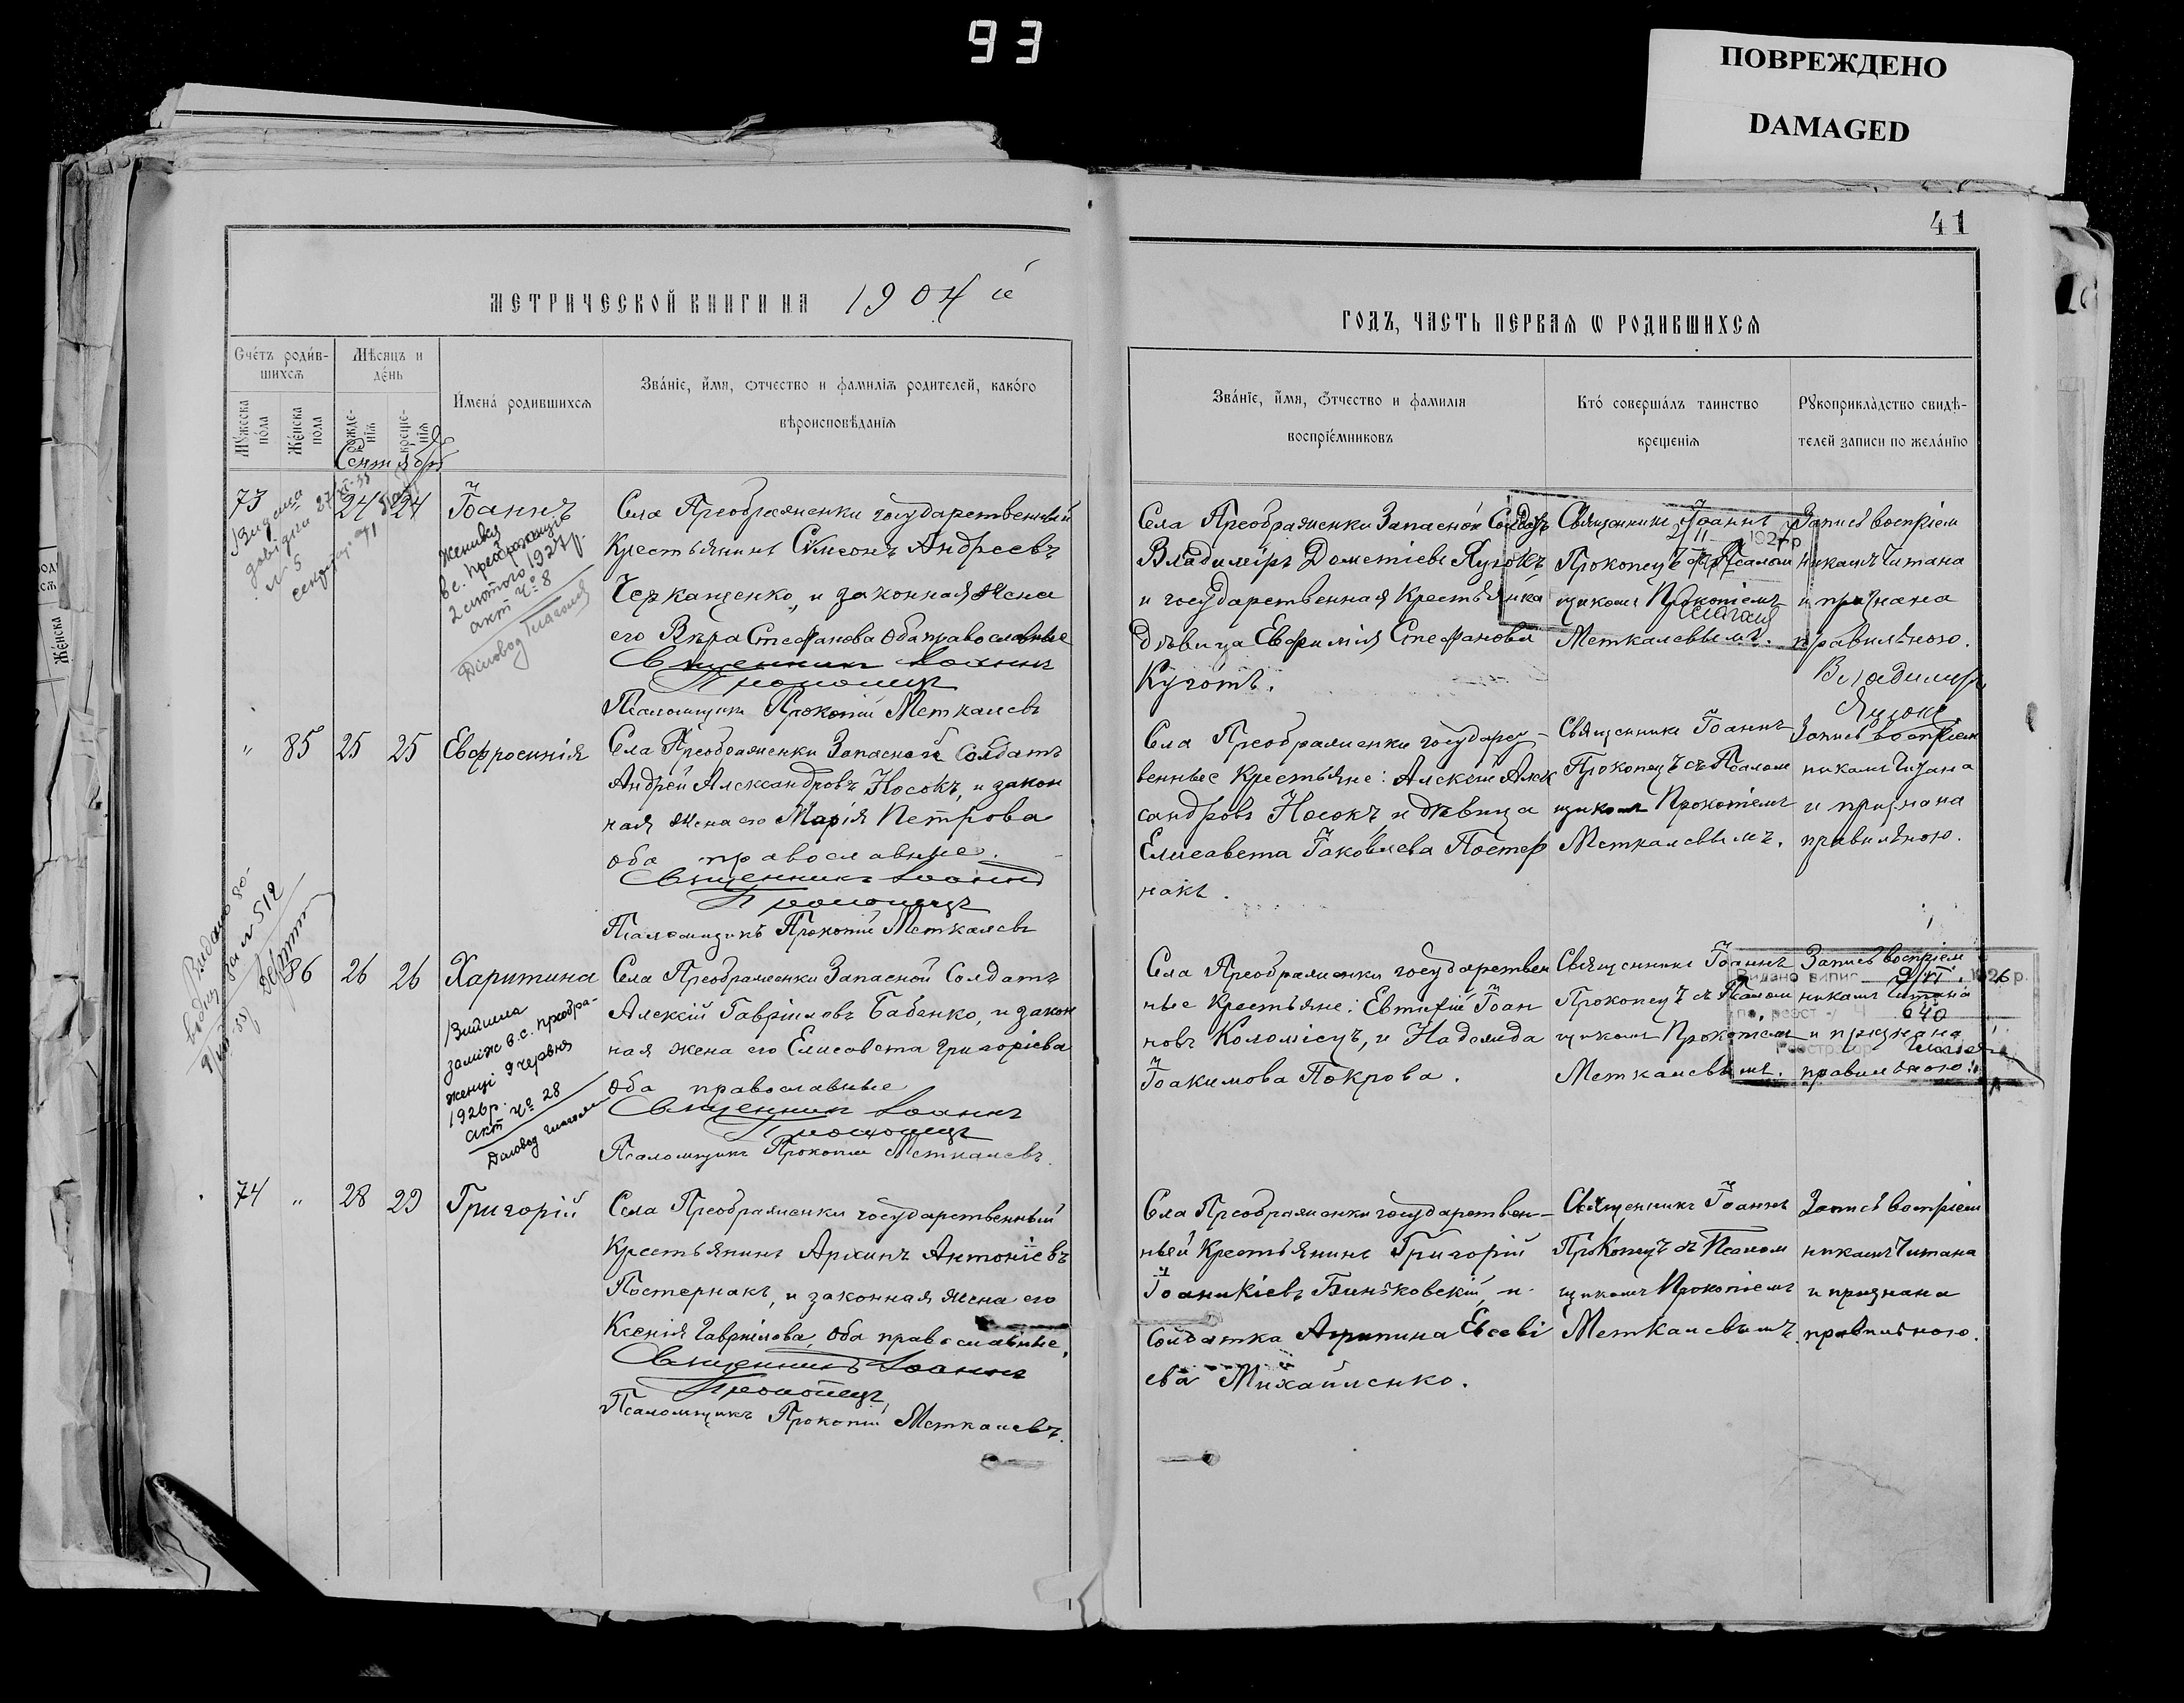 93
ПОВРЕЖДЕНО
DAMAGED
41
МЕТРИЧЕСКОЙ КНИГИ НА 1904 й
ГОДЪ, ЧАСТЬ ПЕРВАЯ Ѡ РОДИВШИХСЯ
Счётъ родив-
шихся
Мѣсяцъ и
день
Мужеска
пола
Женска
пола
рожде-
нія
креще-
нія
Имена родившихся
Званіе, имя, отчество и фамилія родителей, какого
вѣроисповѣданія
Званіе, имя, отчество и фамилія
воспріемниковъ
Кто совершалъ таинство
крещенія
Рукоприкладство свидѣ-
телей записи по желанію
Сентябрь
73 24 24 Іоаннъ
Видана
довідка 27/XI-35
№ 5
Женився
в с. Преображенці
2 лютого 1927 р.
акт Ч⁰ 8
Діловод
Села Преображенки государственный
Крестьянинъ Симеонъ Андреевъ
Черкащенко, и законная жена
его Вѣра Стефанова оба православные
Священникъ Іоаннъ
Прокопецъ
Псаломщикъ Прокопій Меткалевъ
Села Преображенки Запасной Солдатъ
Владиміръ Дометіевъ
и государственная Крестьянка
дѣвица Евфимія Стефанова
Куготъ.
Священникъ Іоаннъ
Прокопецъ съ Псалом
щикомъ Прокопіемъ
Меткалевымъ.
2/II 1927 р
Запись воспріем
никамъ читана
и признана
правильною.
Владимиръ
" 85 25 25 Евфросинія
Села Преображенки Запасной Солдатъ
Андрей Александровъ Носокъ, и закон
ная жена его Марія Петрова
оба православные.
Священникъ Іоаннъ
Прокопецъ
Псаломщикъ Прокопій Меткалевъ
Села Преображенки государст-
венные Крестьяне: Алексей Алек
сандровъ Носокъ и дѣвица
Елисавета Іаковлева Постер
накъ.
Священникъ Іоаннъ
Прокопецъ съ Псалом
щикомъ Прокопіемъ
Меткалевымъ.
Запись воспріем
никамъ читана
и признана
правильною.
за № 512
86 26 26 Харитина
Вийшла
заміж в с. Преобра-
женці 9 червня
1926 р.
акт Ч⁰ 28
Діловод
Села Преображенки Запасной Солдатъ
Алексій Гавріиловъ Бабенко, и закон
ная жена его Елисавета Григоріева
оба православные
Священникъ Іоаннъ
Прокопецъ
Псаломщикъ Прокопій Меткалевъ.
Села Преображенки государствен
ные Крестьяне: Евтихій Іоан
новъ Коломіецъ, и Надежда
Іоакимова Покрова.
Священникъ Іоаннъ
Прокопецъ съ Псалом
щикомъ Прокопіемъ
Меткалевымъ.
Запись воспріем
никамъ читана
и признана
правильною.
Видано випис 9/VI 1926 р.
по реєст. Ч 640
Реєстратор
74 " 28 29 Григорій
Села Преображенки государственный
Крестьянинъ Архипъ Антоніевъ
Постернакъ, и законная жена его
Ксенія Гавріилова, оба православные,
Священникъ Іоаннъ
Прокопецъ,
Псаломщикъ Прокопій Меткалевъ.
Села Преображенки государствен-
ный Крестьянинъ Григорій
Іоаникіевъ Биньковскій, и
Солдатка Агрипина Евсеві
ева Михайленко.
Священникъ Іоаннъ
Прокопецъ съ Псалом
щикомъ Прокопіемъ
Меткалевымъ.
Запись воспріем
никамъ читана
и признана
правильною.